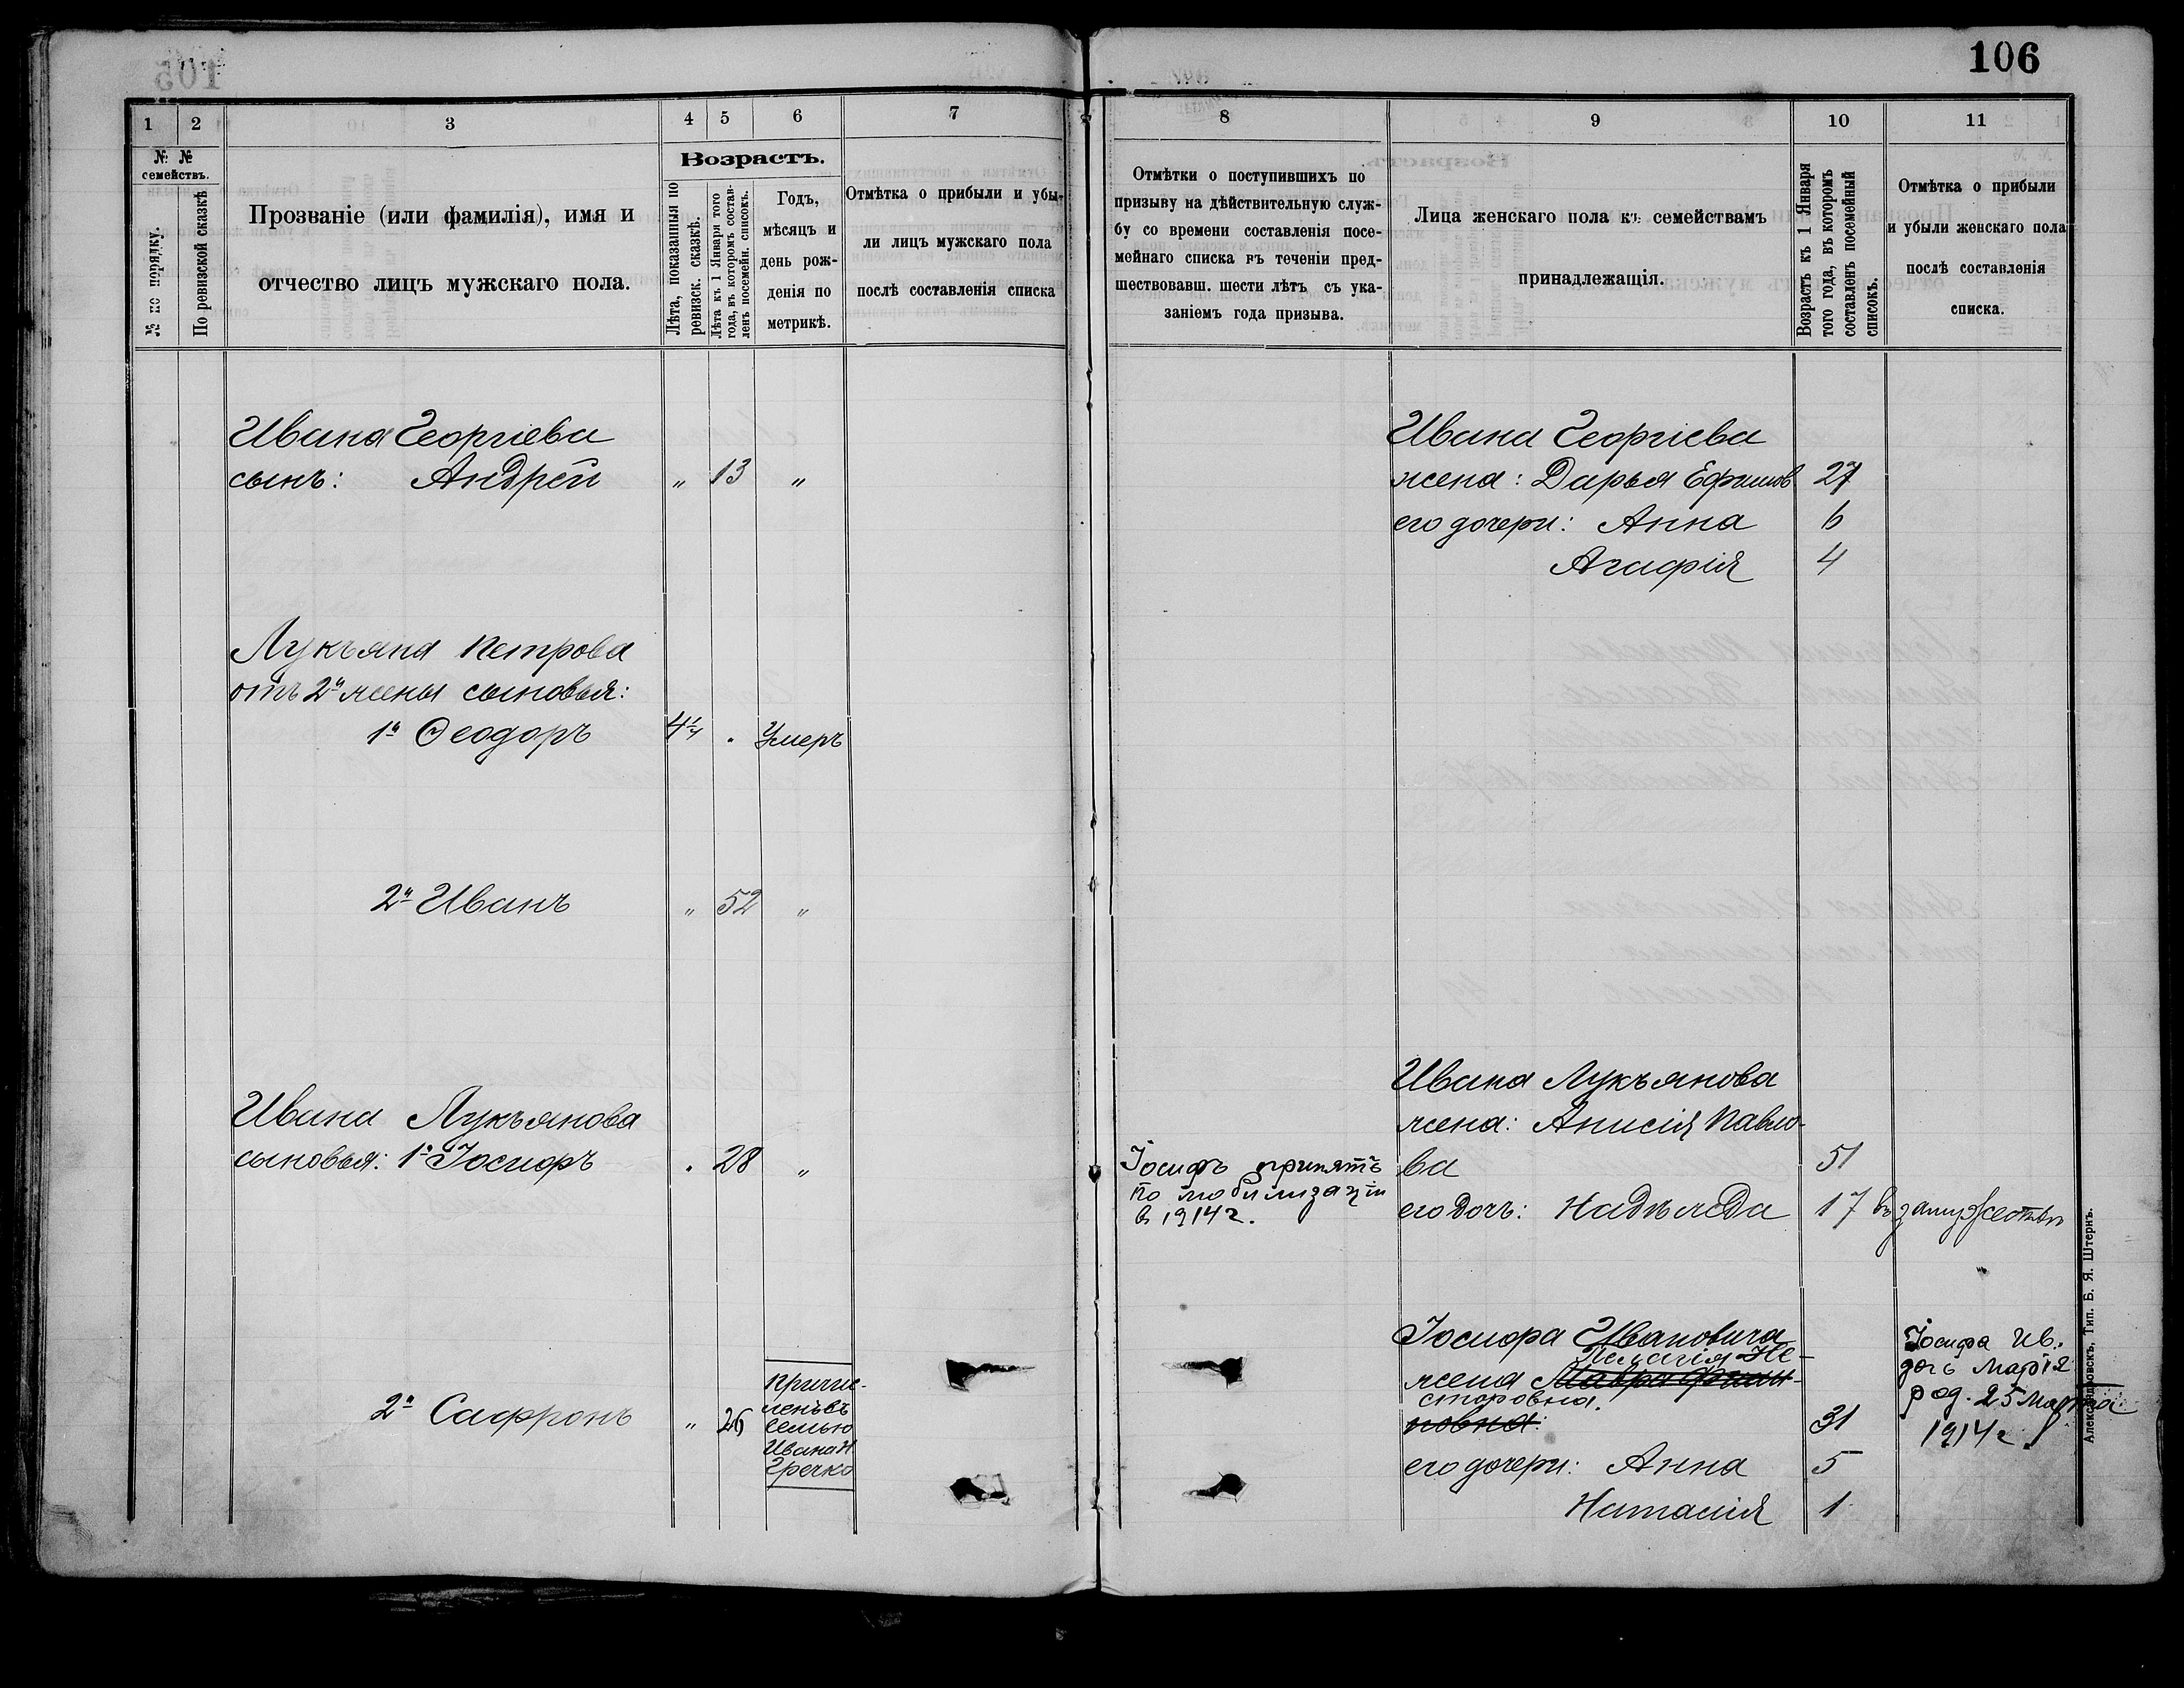 106
1 2 3 4 5 6 7
№ № семействъ.
№ по порядку.
По ревизской сказкѣ
Прозваніе (или фамилія), имя и
отчество лицъ мужскаго пола.
Возрастъ.
Лѣта, показанныя по
ревизск. сказкѣ.
Лѣта къ 1 Января того
года, въ которомъ состав-
ленъ посемейн. списокъ.
Годъ,
мѣсяцъ и
день рож-
денія по
метрикѣ.
Отмѣтка о прибыли и убы-
ли лицъ мужскаго пола
послѣ составленія списка
Ивана Георгіева
сынъ: Андрей " 13 "
Лукъяна Петрова
отъ 2й жены сыновья:
1й Ѳеодоръ 4¼ " Умеръ
2й Иванъ " 52 "
Ивана Лукъянова
сыновья: 1й Іосифъ " 28 "
2й Сафронъ " 26
Причис-
ленъ въ
семью
Ивана Н.
Гречко
8 9 10 11
Отмѣтки о поступившихъ по
призыву на дѣйствительную служ-
бу со времени составленія посе-
мейнаго списка въ теченіи пред-
шествовавш. шести лѣтъ съ ука-
заніемъ года призыва.
Лица женскаго пола къ семействамъ
принадлежащія.
Возрастъ къ 1 Января
того года, въ которомъ
составленъ посемейный
списокъ.
Отмѣтка о прибыли
и убыли женскаго пола
послѣ составленія
списка.
Ивана Георгіева
жена: Дарья Ефимов 27
его дочери: Анна 6
Агафія 4
Ивана Лукъянова
жена: Анисія Павло-
ва 51
его дочь: Надежда 17 въ замужествѣ
Іосифъ принятъ
по мобилизаціи
в 1914 г.
Іосифа Ивановича
Пелагія Не-
жена Мавра Филип-
сторовна.
повна: 31
его дочери: Анна 5
Наталія 1
Іосифа Ив.
дочь Марія
род. 25 Марта
1914 г.
Александровскъ, Тип. Б. Я. Штернъ.